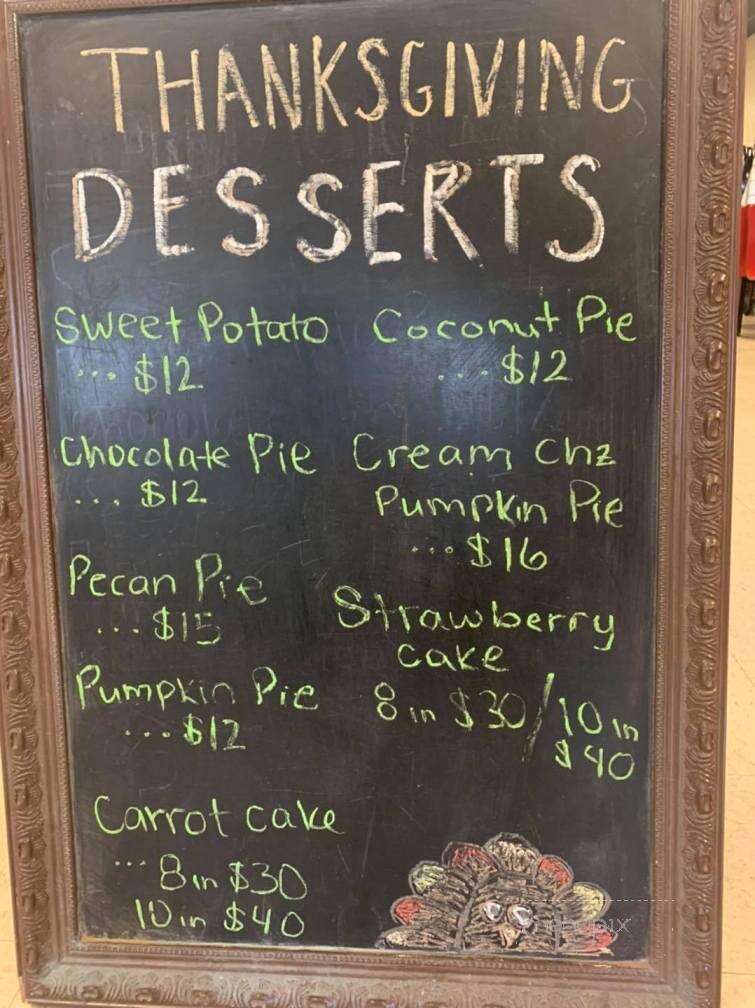 THANKSGIVING
DESSERTS
Sweet Potato
... $12
Chocolate Pie
... $12
Pecan Pie
... $15
Pumpkin Pie
... $12
Carrot cake
... 8 in $30
10 in $40
Coconut Pie
... $12
Cream Chz
Pumpkin Pie
... $16
Strawberry
cake
8 in $30 / 10 in
$40